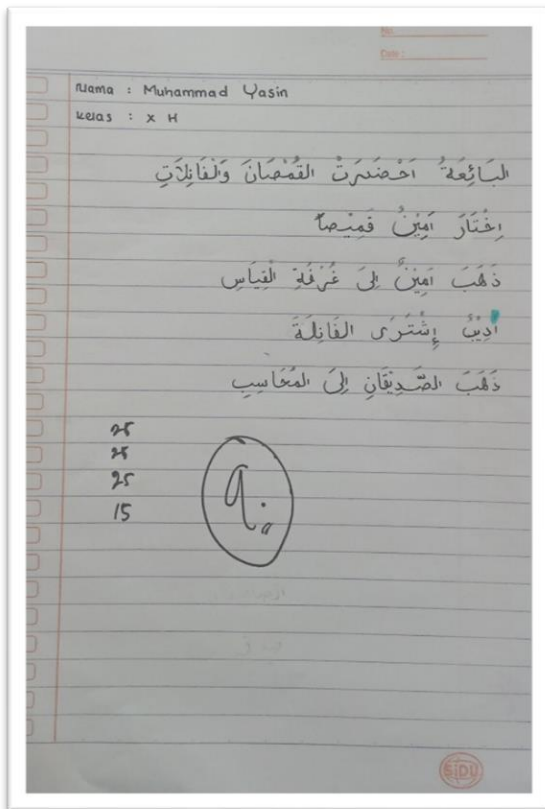 No.
Date :
Nama : Muhammad Yasin
Kelas : X H
البَائِعَةُ اَحْضَرَتْ القُمْصَانَ وَالْفَانِلَاتِ
اِخْتَارَ اَمِيْنٌ قَمِيْصًا
ذَهَبَ اَمِيْنٌ اِلَى غُرْفَةِ الْقِيَاسِ
اَدِيْبٌ اِشْتَرَى الفَانِلَةَ
ذَهَبَ الصَّدِيْقَانِ اِلَى المُحَاسِبِ
25
25
25
15
90
SiDU